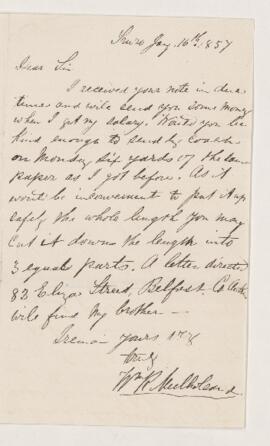 Truro Jany. 16th. 1857
Dear Sir
I received your note in due
time and will send you some money
when I get my salary. Would you be
kind enough to send by coach
on Monday six yards of the same
paper as I got before. As it
wont be inconvenient to put it up
safely the whole length you may
cut it down the length into
3 equal parts. A letter directed
82 Eliza Street, Belfast.
will find my brother —
I remain yours
truly
Wm. R. Mulholland